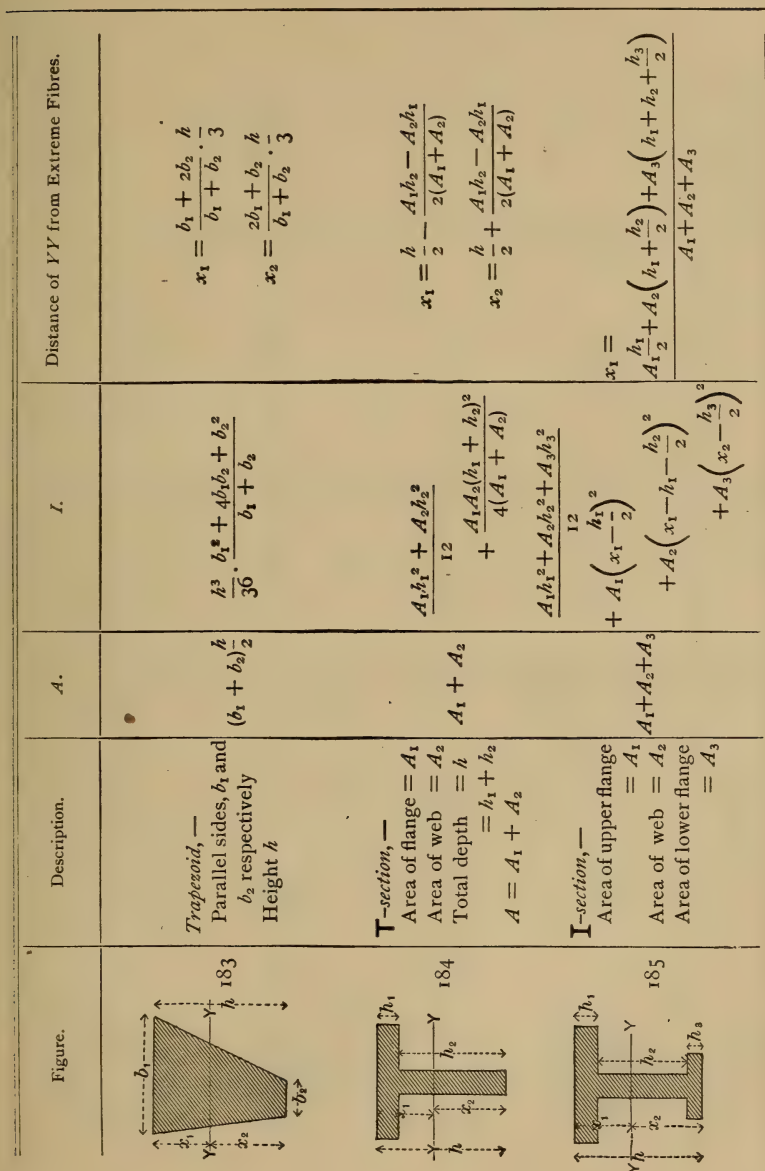 Figure.
Description.
A.
I.
Distance of YY from Extreme Fibres.
b₁
x₁
x₂
Y
Y
h
b₂
183
Trapezoid,—
Parallel sides, b₁ and
b₂ respectively
Height h
(b₁ + b₂) h/2
h³/36 · (b₁² + 4b₁b₂ + b₂²)/(b₁ + b₂)
x₁ = (b₁ + 2b₂)/(b₁ + b₂) · h/3
x₂ = (2b₁ + b₂)/(b₁ + b₂) · h/3
h₁
x₁
Y
Y
h₂
x₂
h
184
T-section,—
Area of flange = A₁
Area of web = A₂
Total depth = h
= h₁ + h₂
A = A₁ + A₂
A₁ + A₂
(A₁h₁² + A₂h₂²)/12
+ A₁A₂(h₁ + h₂)²/4(A₁ + A₂)
x₁ = h/2 − (A₁h₂ − A₂h₁)/2(A₁ + A₂)
x₂ = h/2 + (A₁h₂ − A₂h₁)/2(A₁ + A₂)
h₁
x₁
Y
Y
h₂
x₂
h
h₃
185
I-section,—
Area of upper flange
= A₁
Area of web = A₂
Area of lower flange
= A₃
A₁+A₂+A₃
(A₁h₁² + A₂h₂² + A₃h₃²)/12
+ A₁(x₁ − h₁/2)²
+ A₂(x₁ − h₁ − h₂/2)²
+ A₃(x₂ − h₃/2)²
x₁ =
(A₁ h₁/2 + A₂(h₁ + h₂/2) + A₃(h₁ + h₂ + h₃/2))/(A₁ + A₂ + A₃)